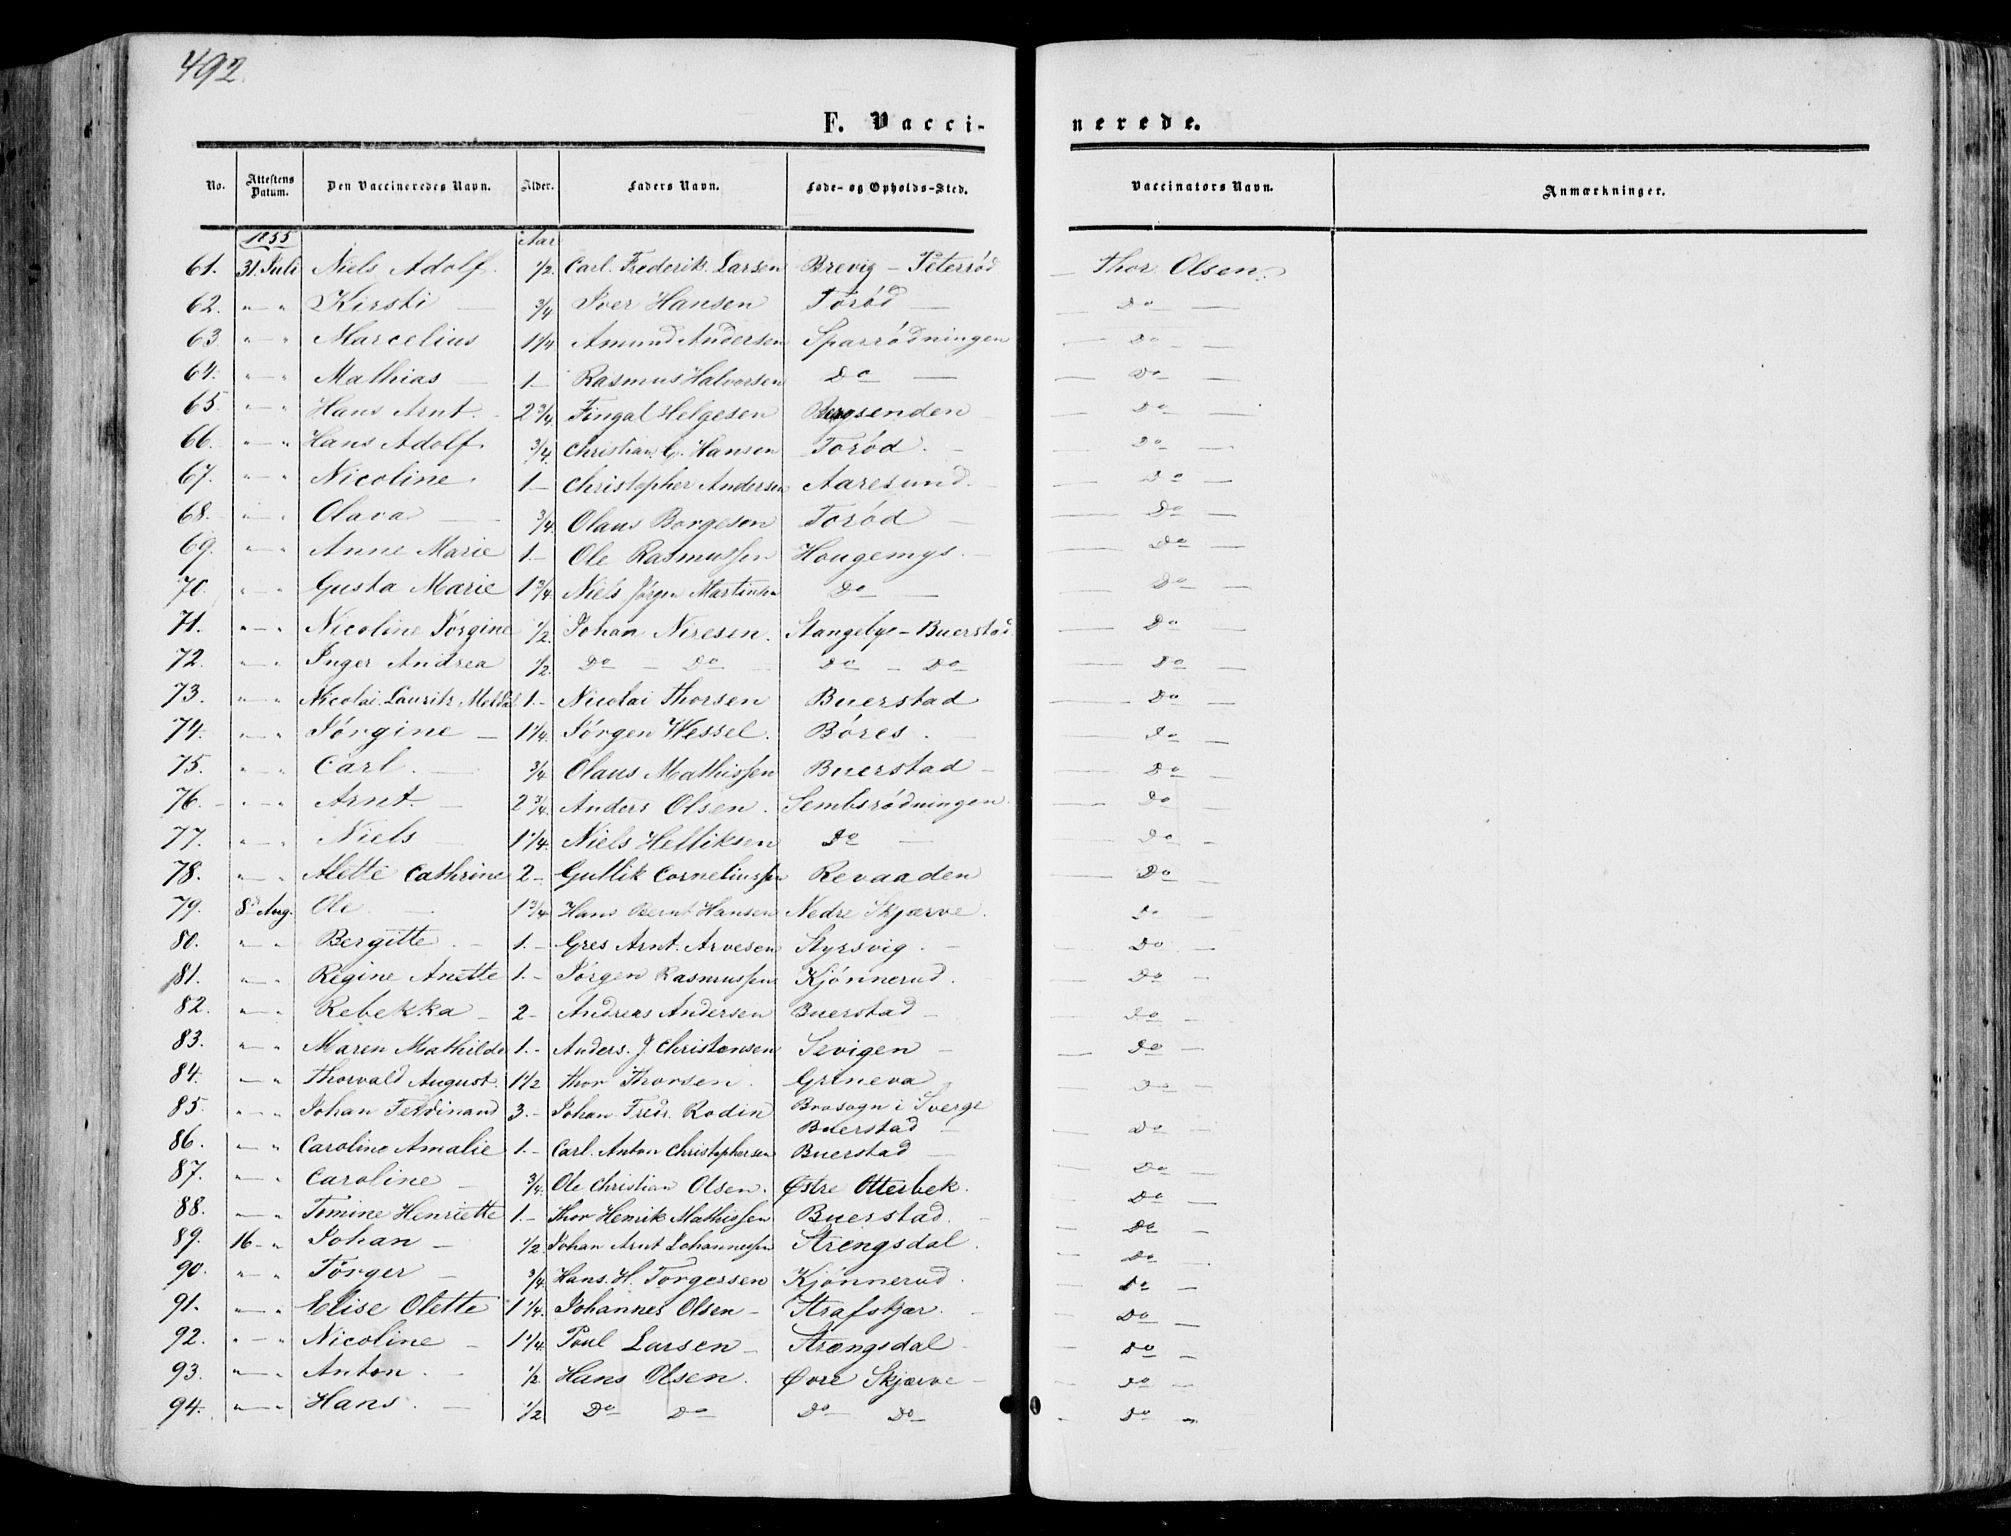 492.
F. Vacci- nerede.
No. Attestens Datum. Den Vaccineredes Navn. Alder. Faders Navn. Føde- og Opholds-Sted. Vaccinators Navn. Anmærkninger.
1855 Aar
61. 31. Juli Niels Adolf. 1/2 Carl. Frederik. Larsen Brevig - Peterrød - Thor Olsen.
62. " - " Kirsti - 3/4 Iver Hansen Torød - Do -
63. " - " Marcelius 1 1/4 Amund Andersen Sparrødningen - Do -
64. " - " Mathias - 1. - Rasmus Halvorsen Do - - Do -
65. " - " Hans Arnt. - 2 3/4 Fingal Helgesen Bergsenden - Do -
66. " - " Hans Adolf 3/4. Christian C. Hansen Torød. - - Do -
67. " - " Nicoline 1. - Christopher Andersen Aaresund. - - Do -
68. " - " Olava - 3/4. Olaus Borgesen Torød - - Do -
69. " - " Anne Marie 1. - Ole Rasmussen Hougemys. - - Do -
70. " - " Gusta Marie 1 3/4. Niels Jørgen Martinsen Do - - Do -
71. " - " Nicoline Jørgine 1/2 Johan Niresen. Stangebye - Buerstad - Do -
72. " - " Inger Andrea 1/2. Do - Do - Do - Do - Do -
73. " - " Nicolai. Lauritz Meldal 1. - Nicolai Thorsen Buerstad - Do -
74. " - " Jørgine - 1 1/4. Jørgen Wessel. Børes. - - Do -
75. " - " Carl. - 3/4. Olaus Mathissen Buerstad - - Do -
76. - " - " Arnt. - 2 3/4. Anders Olsen. Sembsrødningen. - Do -
77. " - " Niels - 1 1/4. Niels Helliksen Do - - Do -
78. " - " Alette Cathrine 2 - Gullik Corneliussen Revaaden - Do -
79. 8de Aug. Ole. - 1 3/4 Hans Bernt Hansen Nedre Skjærve. - Do -
80. " - " Bergitte. - 1. - Gres Arnt. Arvesen Styrsvig. - - Do -
81. " - " Regine Anette 1. - Jørgen Rasmussen Kjønnerud. - Do -
82. " - " Rebekka - 2 - Andreas Andersen Buerstad - - Do -
83. " - " Maren Mathilde 1. - Anders. J. Christensen Sevigen - - Do -
84. " - " Thorvald August. 1 1/2 Thor Thorsen. Grineva - Do -
85. " - " Johan Ferdinand 3. - Johan Fredr. Rodin Brosogn i Sverge
Buerstad - - Do -
86. " - " Caroline Amalie 1. - Carl. Anton Christophersen Buerstad - - Do -
87. " - " Caroline - 3/4. Ole Christian Olsen. Østre Otterbek. - Do -
88. " - " Tomine Henriette 1. - Thor Henrik Mathissen Buerstad. - - Do -
89. 16 - " Johan - 1/2 Johan Arnt Johannessen Strengsdal. - Do -
90. " - " Torger - 3/4 Hans. H. Torgersen Kjønnerud. - Do -
91. " - " Elise Olette 1 1/4. Johannes Olsen - Strafskjær. - - Do -
92. " - " Nicoline - 1 1/4 Poul Larsen - Strængsdal - - Do -
93. " - " Anton. - 1/2 Hans Olsen. Øvre Skjærve - - Do -
94. " - " Hans. - 1/2 Do Do Do - Do - Do -